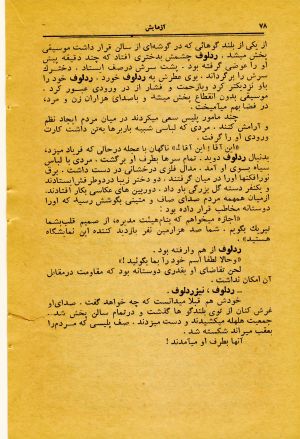 ۷۸
آزمایش
از یکی از بلند گوهائی که در گوشه‌ای از سالن قرار داشت موسیقی
پخش میشد. ردلوف چشمش بدختری افتاد که چند دقیقه پیش
او را عوضی گرفته بود. پشت سرش درصف ایستاد. دخترک
سرش را برگرداند. بوی عطرش به ردلوف خورد. ردلوف خود را
باو نزدیکتر کرد وبازحمت و فشار از در ورودی عبور کرد.
موسیقی بدون انقطاع پخش میشد و باصدای هزاران زن و مرد،
در فضا بهم میآمیخت.
چند مامور پلیس سعی میکردند در میان مردم ایجاد نظم
و آرامش کنند. مردی که لباسی شبیه باربرها به‌تن داشت کارت
ورودی او را گرفت.
«این آقا! این آقا!» ناگهان با عجله درحالی که فریاد میزد،
بدنبال ردلوف دوید. تمام سرها بطرف او برگشت. مردی با لباس
سیاه بسوی او آمد. مدال فلزی درخشانی در دست داشت. برق
نورافکنها اورا در میان گرفتند. دو دختر زیبا دردوطرفش ایستادند
و یکنفر دسته گل بزرگی باو داد. دوربین های عکاسی بکار افتادند.
ازمیان همهمه مردم صدای صاف و متینی بگوشش رسید که اورا
دوستانه مخاطب قرار داده بود:
«اجازه میخواهم که بنام‌هیئت مدیره، از صمیم قلب‌بشما
تبریک بگویم. شما صد هزارمین نفر بازدید کننده این نمایشگاه
هستید».
ردلوف از هم وارفته بود.
«وحالا لطفا اسم خود را بما بگوئید!»
لحن تقاضای او بقدری دوستانه بود که مقاومت درمقابل
آن امکان نداشت.
ــ ردلوف، نیزردلوف.
خودش هم قبلا میدانست که چه خواهد گفت. صدای‌او
غرش کنان از توی بلندگو ها گذشت و درتمام سالن پخش شد...
جمعیت هلهله میکشیدند و دست میزدند. صف پلیسی که مردم‌را
بعقب میراند شکسته شد.
آنها بطرف او میآمدند!